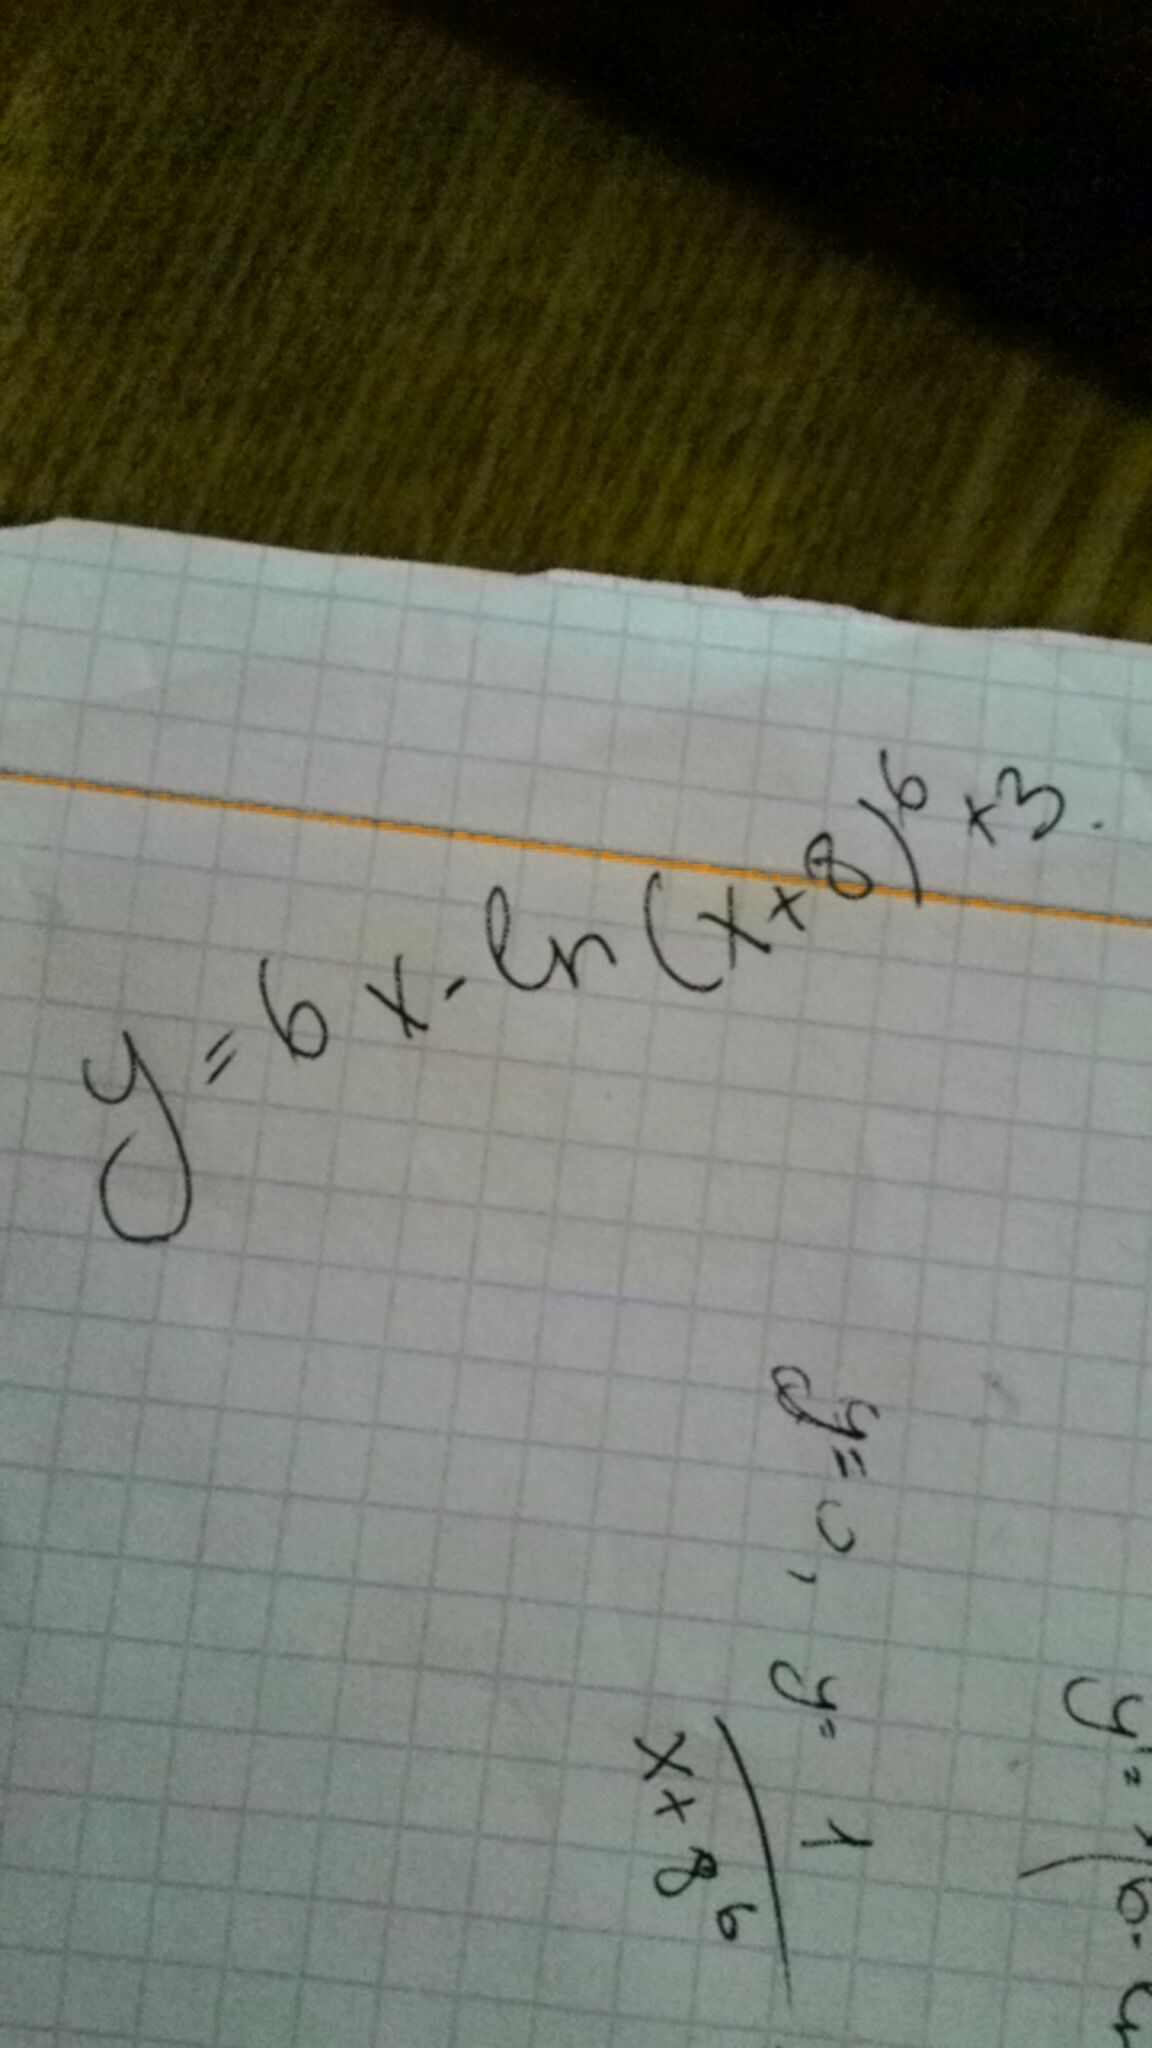 y = 6x - ln(x+8)⁶ + 3.
y = 0, y = 1
x+8⁶